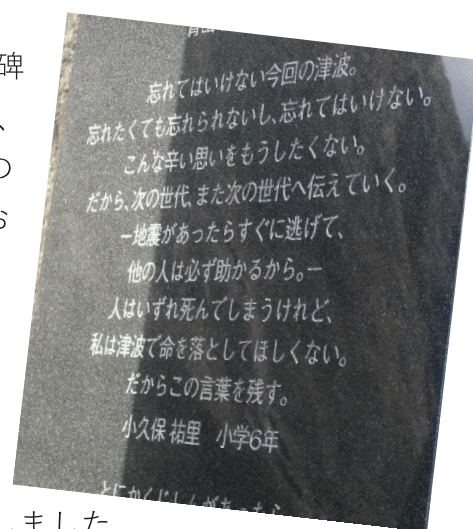 碑
、
の
お
青山
忘れてはいけない今回の津波。
忘れたくても忘れられないし、忘れてはいけない。
こんな辛い思いをもうしたくない。
だから、次の世代、また次の世代へ伝えていく。
ー地震があったらすぐに逃げて、
他の人は必ず助かるから。ー
人はいずれ死んでしまうけれど、
私は津波で命を落としてほしくない。
だからこの言葉を残す。
小久保 祐里 小学6年
とにかくじしんがあったら
ました